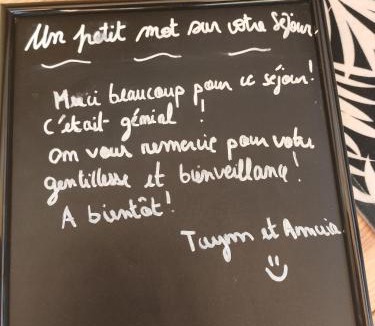 Un petit mot sur votre Séjour.
Merci beaucoup pour ce séjour!
C'était génial !
on vous remercie pour votre
gentillesse et bienveillance!
A bientôt!
et